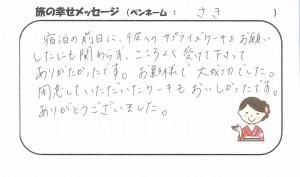 旅の幸せメッセージ (ペンネーム： さき )
宿泊の前日に、9月への サプライズケーキを お願い
したにも関わらず、こころよく 受けて下さって
ありがたかったです。お蔭様で 大成功でした。
用意していただいたケーキも おいしかったです。
ありがとうございました。